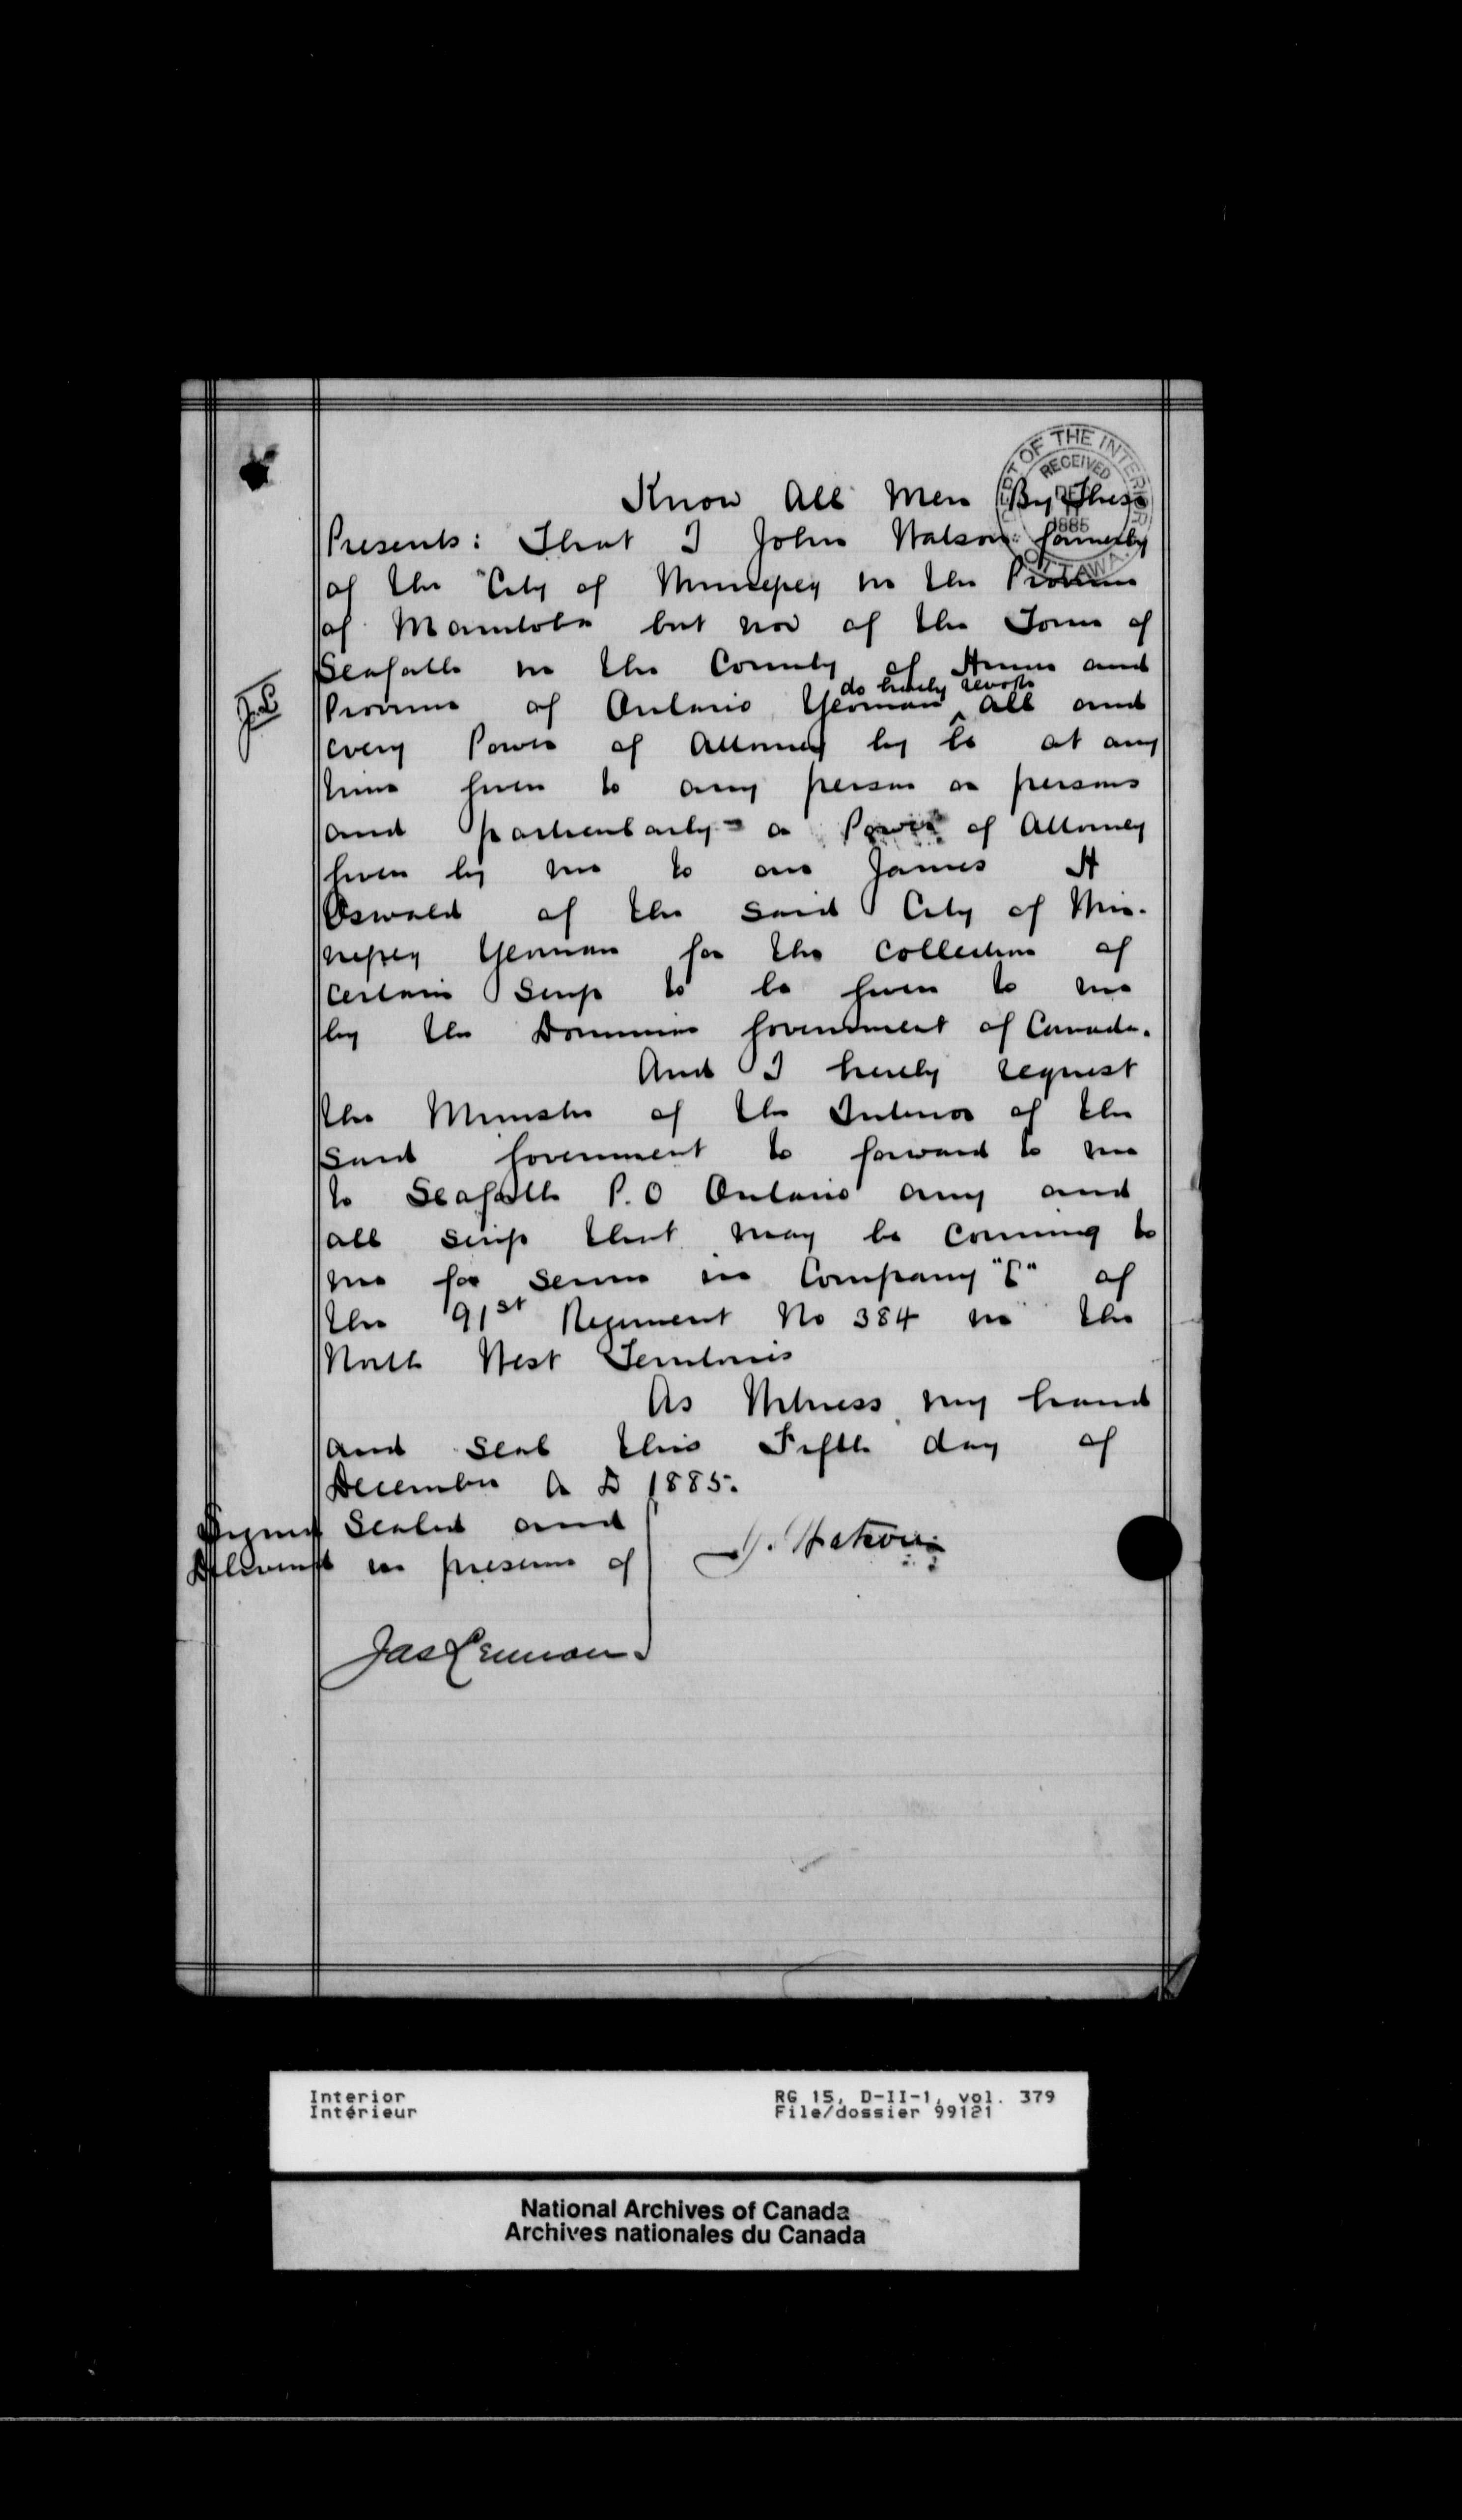 DEPT OF THE INTERIOR
RECEIVED
1885
OTTAWA
Know All Men By These
Presents: That I John Watson formerly
of the City of Winnipeg in the Province
of Manitoba but now of the Town of
Seaforth in the County of Huron and
do hereby revoke
Province of Ontario Yeoman ^ all and
every Power of Attorney by at any
time given to any person or persons
and particularly a Power of Attorney
given by me to one James H
Oswald of the said City of Win-
nipeg Yeoman for the collection of
certain Scrip to be given to me
by the Dominion Government of Canada.
And I hereby request
the Minister of the Interior of the
said Government to forward to me
to Seaforth P.O Ontario any and
all scrip that may be coming to
me for service in Company "C" of
the 91st Regiment No 384 in the
North West Territories
As Witness my hand
and seal this Fifth day of
December A D 1885.
Signed Sealed and
Delivered in presence of
J. Watson
Jas Lennan
Interior
Intérieur
RG 15, D-II-1, vol. 379
File/dossier 99121
National Archives of Canada
Archives nationales du Canada